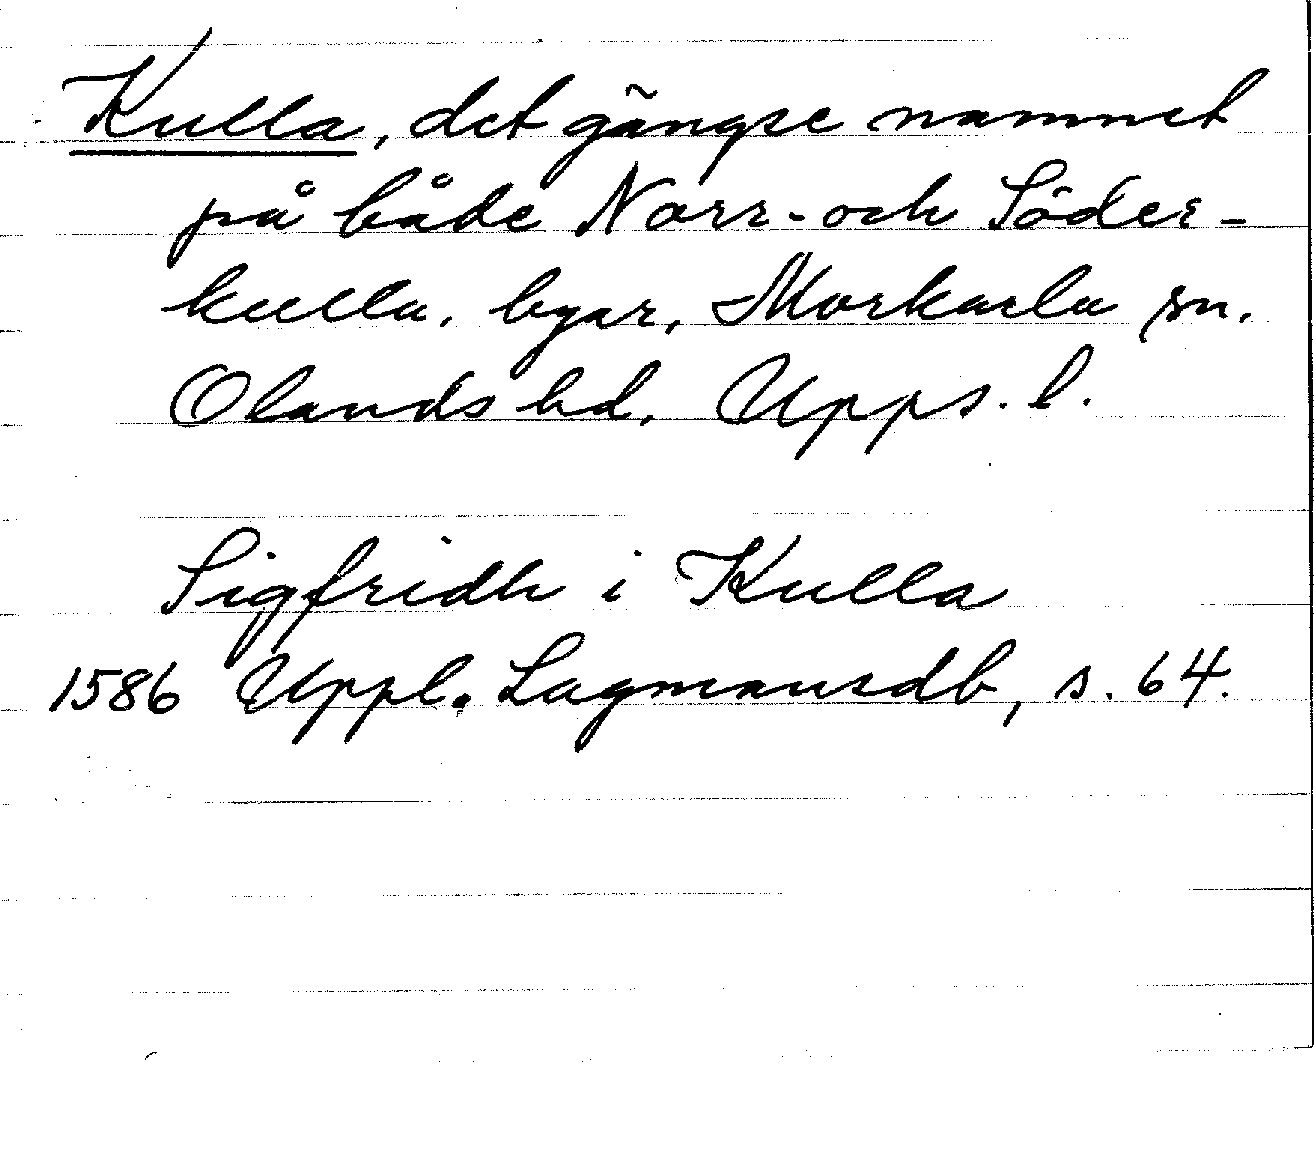 Kulla, det gängse namnet
på både Norr- och Söder-
kulla, byar, Morkarla sn.
Olands hd, Upps. l.
Sigfridh i Kulla
1586 Uppl. Lagmansdb, s. 64.